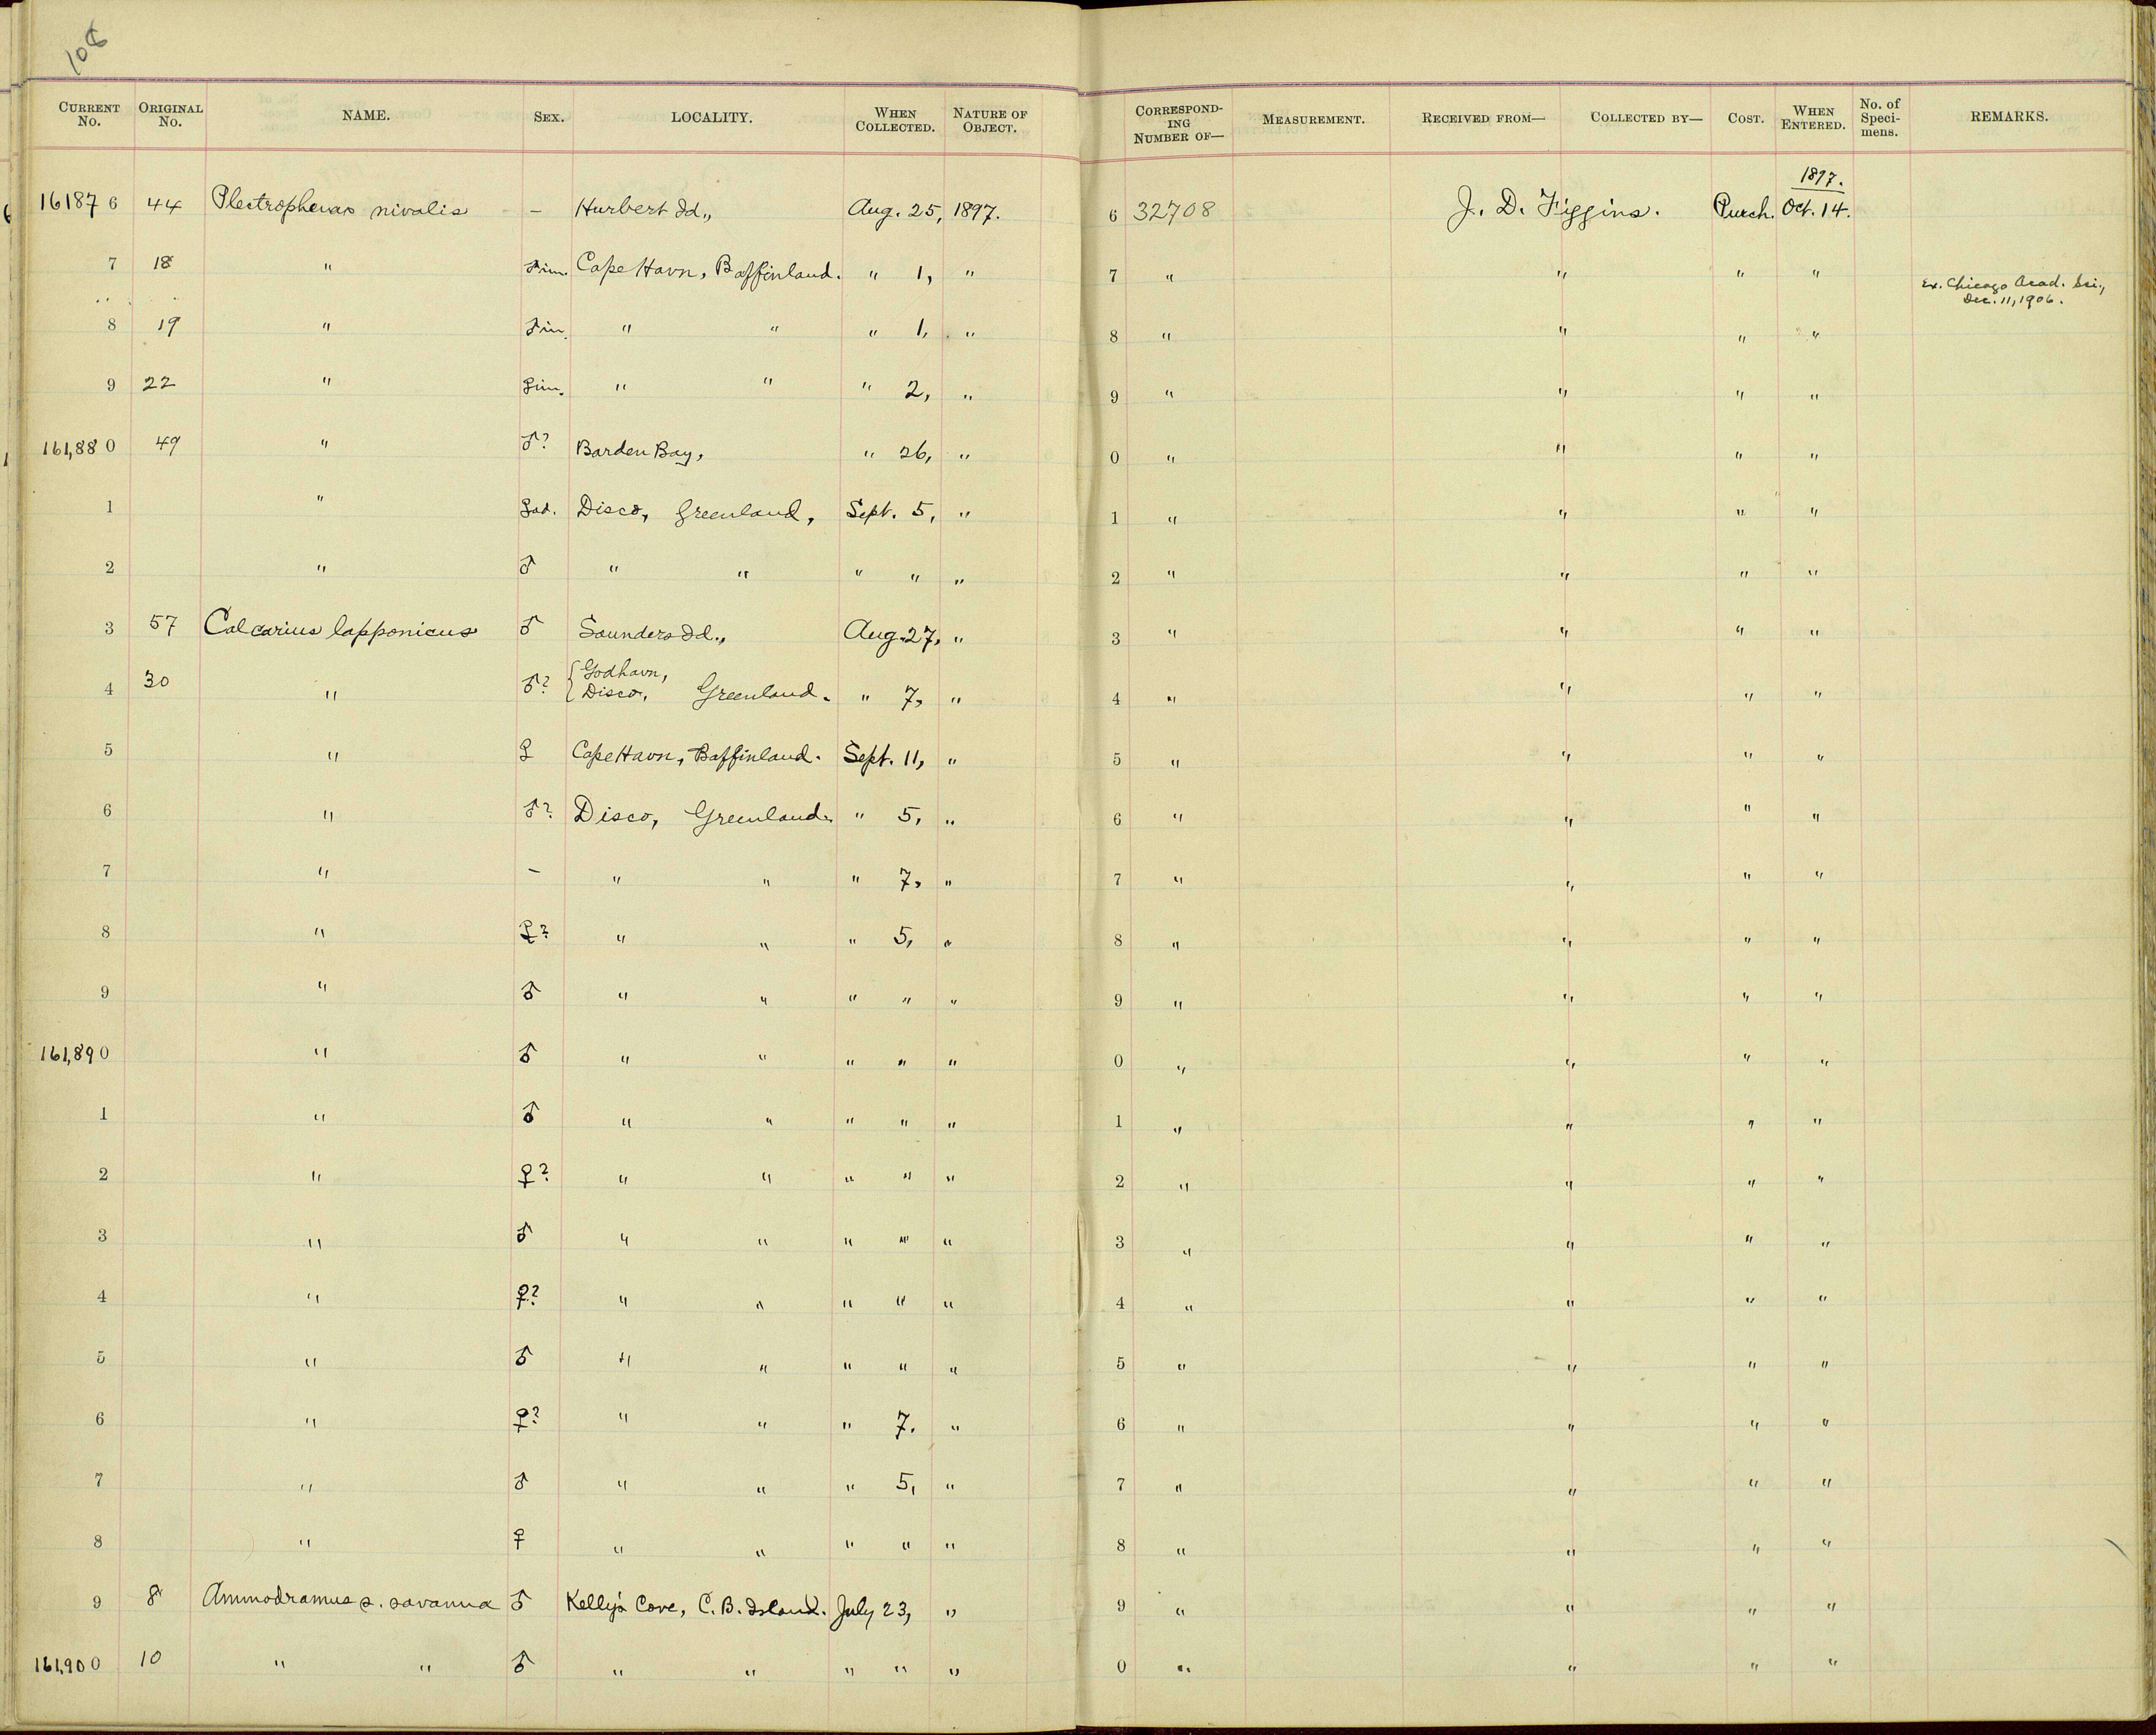 108
CURRENT No. ORIGINAL No. NAME. SEX. LOCALITY. WHEN COLLECTED. NATURE OF OBJECT. CORRESPONDING NUMBER OF— MEASUREMENT. RECEIVED FROM— COLLECTED BY— COST. WHEN ENTERED. No. of Specimens. REMARKS.
1897.
161876 44 Plectrophenax nivalis – Hurbert Id., Aug. 25, 1897. 6 32708 J. D. Figgins. Purch. Oct. 14.
7 18 " ♂ im. Cape Havn, Baffinland. " 1, " 7 " " " " Ex. Chicago Acad. Sci., Dec. 11, 1906.
8 19 " ♂ im. " " " 1, " 8 " " " "
9 22 " ♀ im. " " " 2, " 9 " " " "
161,880 49 " ♂? Barden Bay, " 26, " 0 " " " "
1 " ♀ ad. Disco, Greenland, Sept. 5, " 1 " " " "
2 " ♂ " " " " " 2 " " " "
3 57 Calcarius lapponicus ♂ Saunders Id., Aug. 27, " 3 " " " "
4 30 " ♂? { Godhavn, Disco, Greenland. " 7, " 4 " " " "
5 " ♀ Cape Havn, Baffinland. Sept. 11, " 5 " " " "
6 " ♂? Disco, Greenland. " 5, " 6 " " " "
7 " – " " " 7, " 7 " " " "
8 " ♀? " " " 5, " 8 " " " "
9 " ♂ " " " " " 9 " " " "
161,890 " ♂ " " " " " 0 " " " "
1 " ♂ " " " " " 1 " " " "
2 " ♀? " " " " " 2 " " " "
3 " ♂ " " " " " 3 " " " "
4 " ♀? " " " " " 4 " " " "
5 " ♂ " " " " " 5 " " " "
6 " ♀? " " " 7. " 6 " " " "
7 " ♂ " " " 5, " 7 " " " "
8 " ♀ " " " " " 8 " " " "
9 8 Ammodramus s. savanna ♂ Kelly's Cove, C. B. Island. July 23, " 9 " " " "
161,900 10 " " ♂ " " " " " 0 " " " "